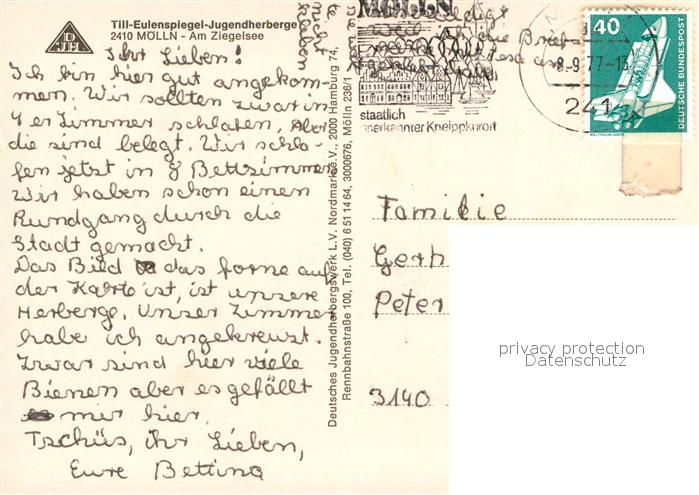 Till-Eulenspiegel-Jugendherberge
2410 MÖLLN - Am Ziegelsee
DJH
Ihr Lieben!
Ich bin hier gut angekom-
men. Wir sollten zwar in
4er Zimmer schlafen, Aber
die sind belegt. Wir schla-
fen jetzt in 8 Bettzimmer
Wir haben schon einen
Rundgang durch die
Stadt gemacht.
Das Bild das forne auf
der Karte ist, ist unsere
Herberge. Unser Zimmer
habe ich angekreuzt.
Zwar sind hier viele
Bienen aber es gefällt
mir hier.
Tschüs, ihr Lieben,
Eure Bettina
Deutsches Jugendherbergswerk L.V. Nordmark e.V., 2000 Hamburg 74,
Rennbahnstraße 100, Tel. (040) 6 51 14 64, 3000676, Mölln 236/1
nicht
kleben
MÖLLN
die Brief-
staatlich
anerkannter Kneippkurort
-8.-9.77-13
241
40
DEUTSCHE BUNDESPOST
WELTRAUMLABOR
Familie
Gerh
Peter
3140
privacy protection
Datenschutz